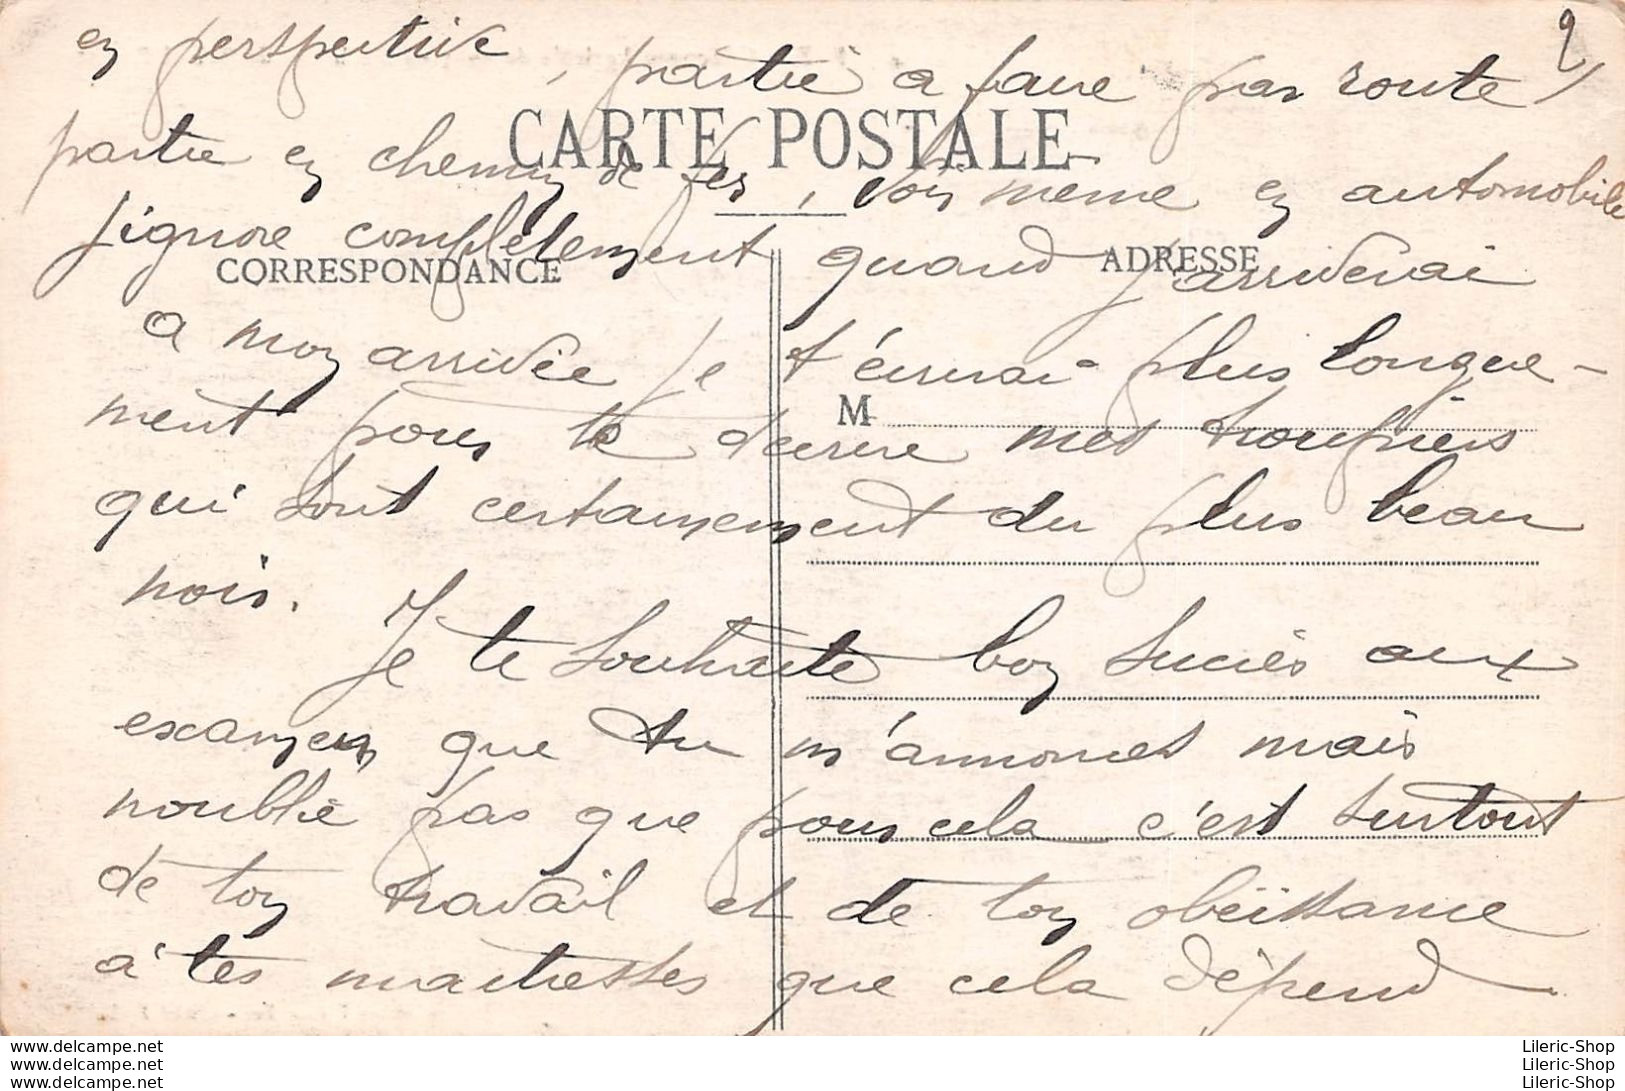 2/
en perspective, partie a faire par route,
CARTE POSTALE
partie en chemin de fer, voir meme en automobile
j'ignore complètement quand j'arriverai
CORRESPONDANCE
ADRESSE
a mon arrivée je t'écrirai plus longue-
M
ment pour te decrire mes troupiers
qui sont certainement du plus beau
noir.
Je te souhaite bon succès aux
examens que tu m'annonces mais
noublie pas que pour cela c'est surtout
de ton travail et de ton obéissance
à tes maitresses que cela dépend
www.delcampe.net
www.delcampe.net
www.delcampe.net
Lileric-Shop
Lileric-Shop
Lileric-Shop